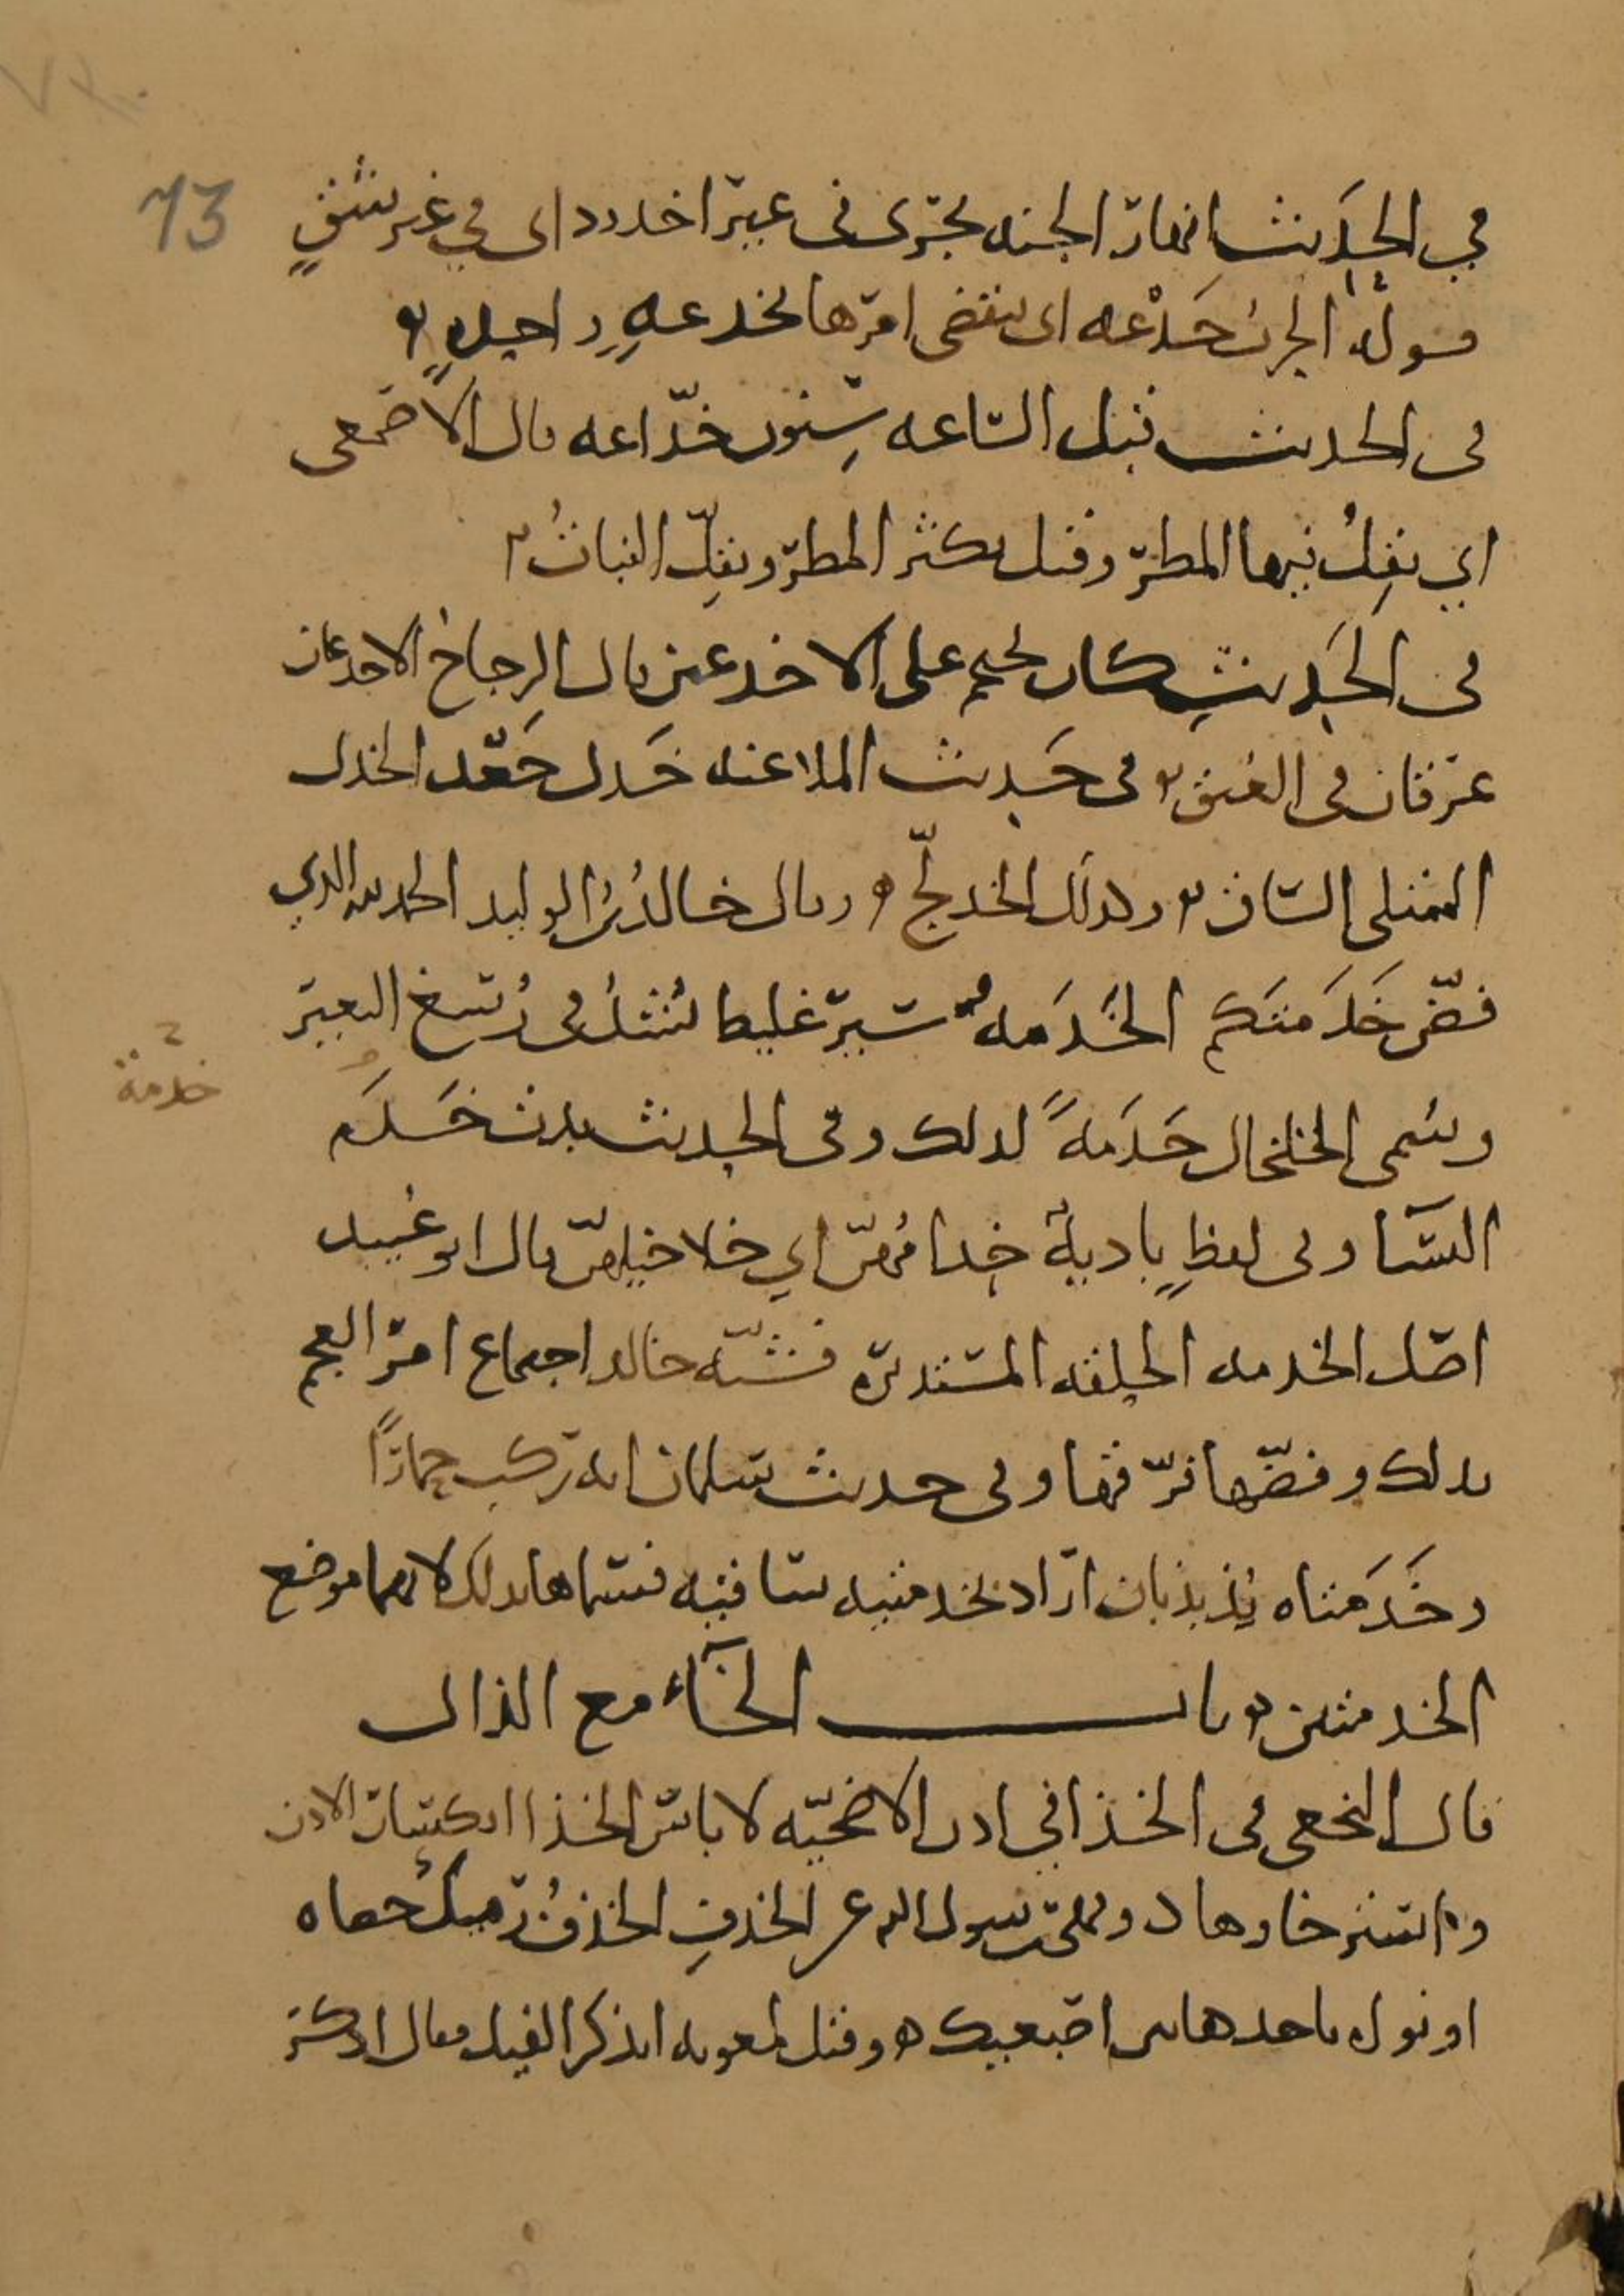 73
في الحديث انهار الجنه تجرى فى غير اخدود اى في غير شقٍ
قوله الحرب خَدْعه اى ينقضى امرها بخدعهٍ واحدهٍ
فى الحديث قبل الساعه سِنون خدّاعه قال الاصمعى
اي يقِلُ فيها المطر وقيل يكثر المطر ويقِلّ النباتُ
فى الحَديثِ كان يحتجم على الاخدعين قال الزجاج الاخدعان
عرقان فى العُنق فى حَديث الملاعنه خَدل جَعْد الخدل
الممتلى الساق وكذلك الخدلّج وقال خالدُ بنُ الوليد الحمد لله الذي
فضّ خَدَمتكم الخَدَمه سَير غليظ يُشدُ فى رُسغ البعير
خدمة
ويُسمى الخلخال خَدَمهً لذلك وفى الحديث بدت خَدَم
النسَآ وفى لفظٍ باديهً خِدامُهنّ اي خلاخيلهنّ قال ابو عُبيد
اصل الخدمه الحلقه المستديره فشبّه خالد اجتماع امر العجم
بذلك وفضّها فرّقها وفى حديث سلمان انه ركب حمارًا
وخَدَمتاه تذبذبان اراد بخدمتيه ساقيه فسماها بذلك لانهما موضع
الخدمتين باب الخآء مع الذال
قال النخعى فى الخذا في اذن الاضحيّه لا باس الخذا انكسار الاذن
واسترخاوها ونهى رسول الله عن الخذفِ الخذفُ رميكُ حصاه
او نواه تاخدها بين اصبعيك وقيل لمعويه اتذكر الفيل فقال اذكر